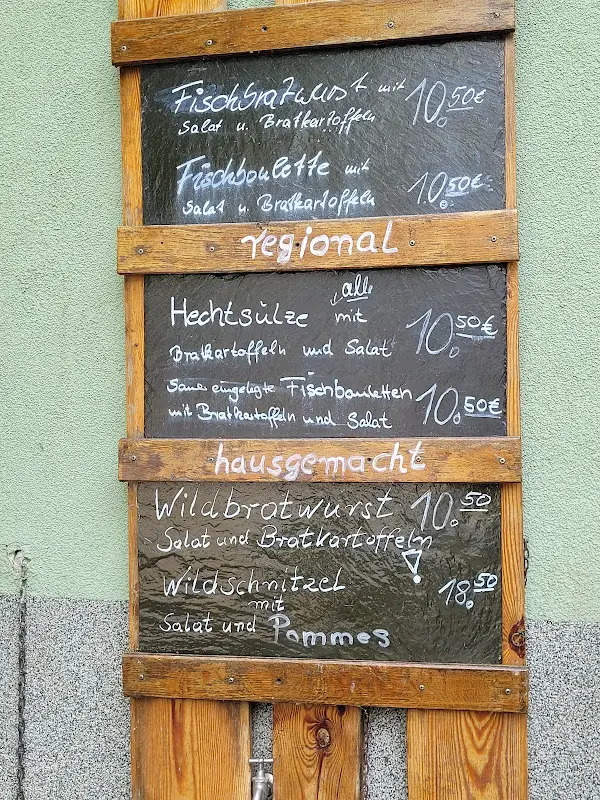 Fischbratwurst mit 10.50€
Salat u. Bratkartoffeln
Fischboulette mit
Salat u. Bratkartoffeln 10.50€
regional
alle
Hechtsülze mit 10.50€
Bratkartoffeln und Salat
Sauer eingelegte Fischbouletten
mit Bratkartoffeln und Salat 10.50€
hausgemacht
Wildbratwurst 10.50
Salat und Bratkartoffeln
!
Wildschnitzel 18.50
mit
Salat und Pommes